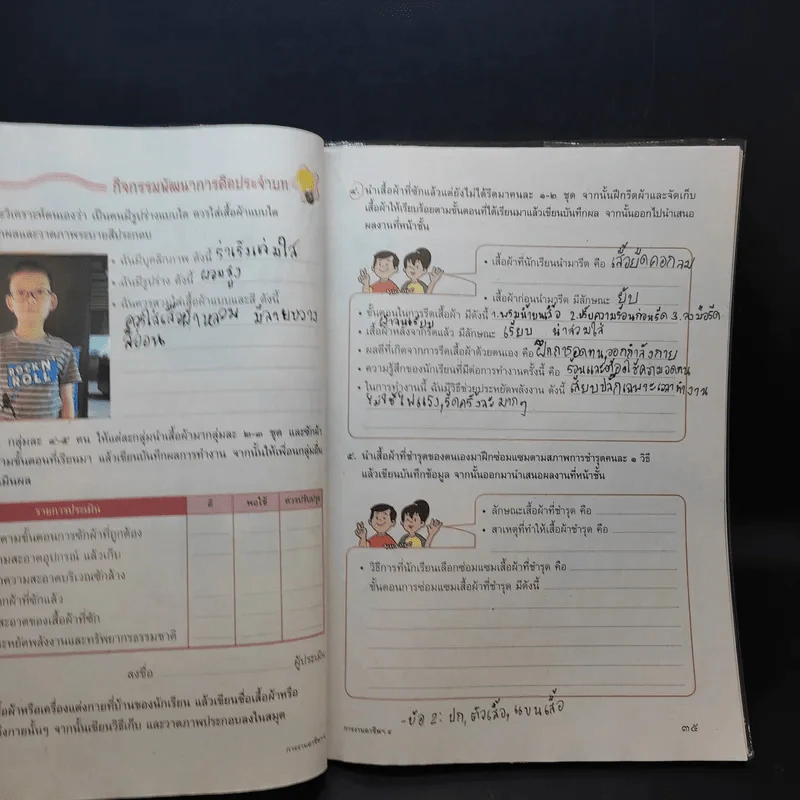 กิจกรรมพัฒนาการคิดประจำบท
วิเคราะห์ตนเองว่า เป็นคนมีรูปร่างแบบใด ควรใส่เสื้อผ้าแบบใด
ผลและวาดภาพระบายสีประกอบ
• ฉันมีบุคลิกภาพ ดังนี้ ร่าเริงแจ่มใส
• ฉันมีรูปร่าง ดังนี้ ผอมสูง
• ฉันควรสวมใส่เสื้อผ้าแบบและสี ดังนี้
ควรใส่เสื้อผ้าหลวม มีลายขวาง
สีอ่อน
ROCK N'
ROLL
กลุ่มละ ๔-๕ คน ให้แต่ละกลุ่มนำเสื้อผ้ามากลุ่มละ ๒-๓ ชุด และซักผ้า
ตามขั้นตอนที่เรียนมา แล้วเขียนบันทึกผลการทำงาน จากนั้นให้เพื่อนกลุ่มอื่น
เมินผล
รายการประเมิน ดี พอใช้ ควรปรับปรุง
ตามขั้นตอนการซักผ้าที่ถูกต้อง
ามสะอาดอุปกรณ์ แล้วเก็บ
าความสะอาดบริเวณซักล้าง
กผ้าที่ซักแล้ว
ะอาดของเสื้อผ้าที่ซัก
ะหยัดพลังงานและทรัพยากรธรรมชาติ
ลงชื่อ ผู้ประเมิน
สื้อผ้าหรือเครื่องแต่งกายที่บ้านของนักเรียน แล้วเขียนชื่อเสื้อผ้าหรือ
ต่งกายนั้นๆ จากนั้นเขียนวิธีเก็บ และวาดภาพประกอบลงในสมุด
การงานอาชีพฯ ๔
๔. นำเสื้อผ้าที่ซักแล้วแต่ยังไม่ได้รีดมาคนละ ๑-๒ ชุด จากนั้นฝึกรีดผ้าและจัดเก็บ
เสื้อผ้าให้เรียบร้อยตามขั้นตอนที่ได้เรียนมาแล้วเขียนบันทึกผล จากนั้นออกไปนำเสนอ
ผลงานที่หน้าชั้น
• เสื้อผ้าที่นักเรียนนำมารีด คือ เสื้อยืดคอกลม
• เสื้อผ้าก่อนนำมารีด มีลักษณะ ยับ
• ขั้นตอนในการรีดเสื้อผ้า มีดังนี้ 1.พรมน้ำบนเสื้อ 2.ปรับความร้อนก่อนรีด 3.ลงมือรีด
ผ้าจนเรียบ
• เสื้อผ้าหลังจากรีดแล้ว มีลักษณะ เรียบ น่าสวมใส่
• ผลดีที่เกิดจากการรีดเสื้อผ้าด้วยตนเอง คือ ฝึกการอดทน,ออกกำลังกาย
• ความรู้สึกของนักเรียนที่มีต่อการทำงานครั้งนี้ คือ ร้อนและต้องใช้ความอดทน
• ในการทำงานนี้ ฉันมีวิธีช่วยประหยัดพลังงาน ดังนี้ เสียบปลั๊กเฉพาะเวลาทำงาน
ไม่ใช้ไฟแรง,รีดครั้งละมากๆ
๕. นำเสื้อผ้าที่ชำรุดของตนเองมาฝึกซ่อมแซมตามสภาพการชำรุดคนละ ๑ วิธี
แล้วเขียนบันทึกข้อมูล จากนั้นออกมานำเสนอผลงานที่หน้าชั้น
• ลักษณะเสื้อผ้าที่ชำรุด คือ
• สาเหตุที่ทำให้เสื้อผ้าชำรุด คือ
• วิธีการที่นักเรียนเลือกซ่อมแซมเสื้อผ้าที่ชำรุด คือ
ขั้นตอนการซ่อมแซมเสื้อผ้าที่ชำรุด มีดังนี้
-ข้อ 2: ปก, ตัวเสื้อ, แขนเสื้อ
การงานอาชีพฯ ๔
๓๕